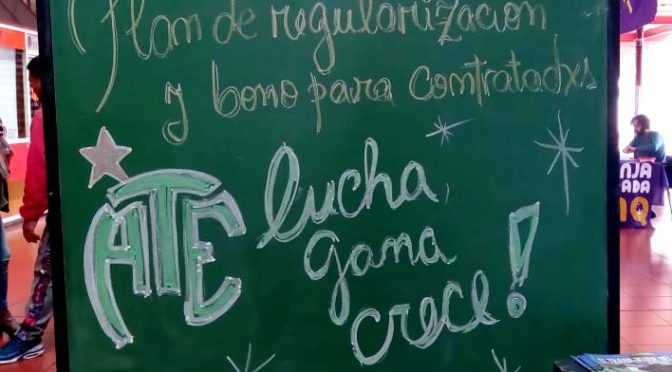 Plan de regularización
y bono para contratadxs
ATE
lucha
gana
crece!